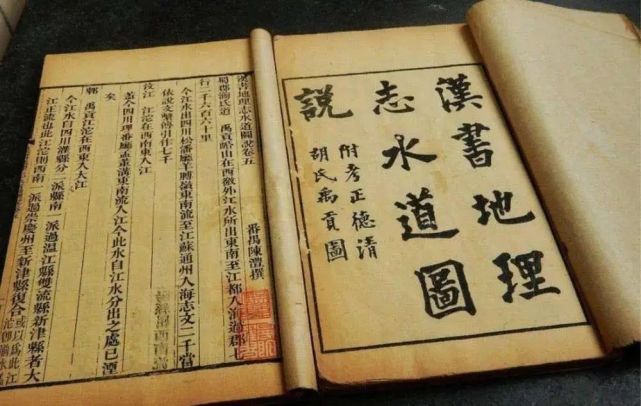 漢書地理
志水道圖
說
附考正德清
胡氏禹貢圖
漢書地理志水道圖說卷五
番禺陳澧撰
蜀郡湔氐道 禹貢㟭山在西徼外江水所出東南至江都入海過郡七
行二千六百六十里
今江水出四川松潘廳羊膊嶺東南流至江蘇通州入海志文二千當
依說文繫傳引作七千
汶江 江沱在西南東入江
蓋今四川理番廳孟董溝東南流入江今此水自江水分出之處已湮
矣
郫 禹貢江沱在西東入大江
今江水自四川灌縣分一派過溫江縣雙流縣新津縣者大
江正流也此江沱則西南一派過崇慶州至新津縣復合或以為此江